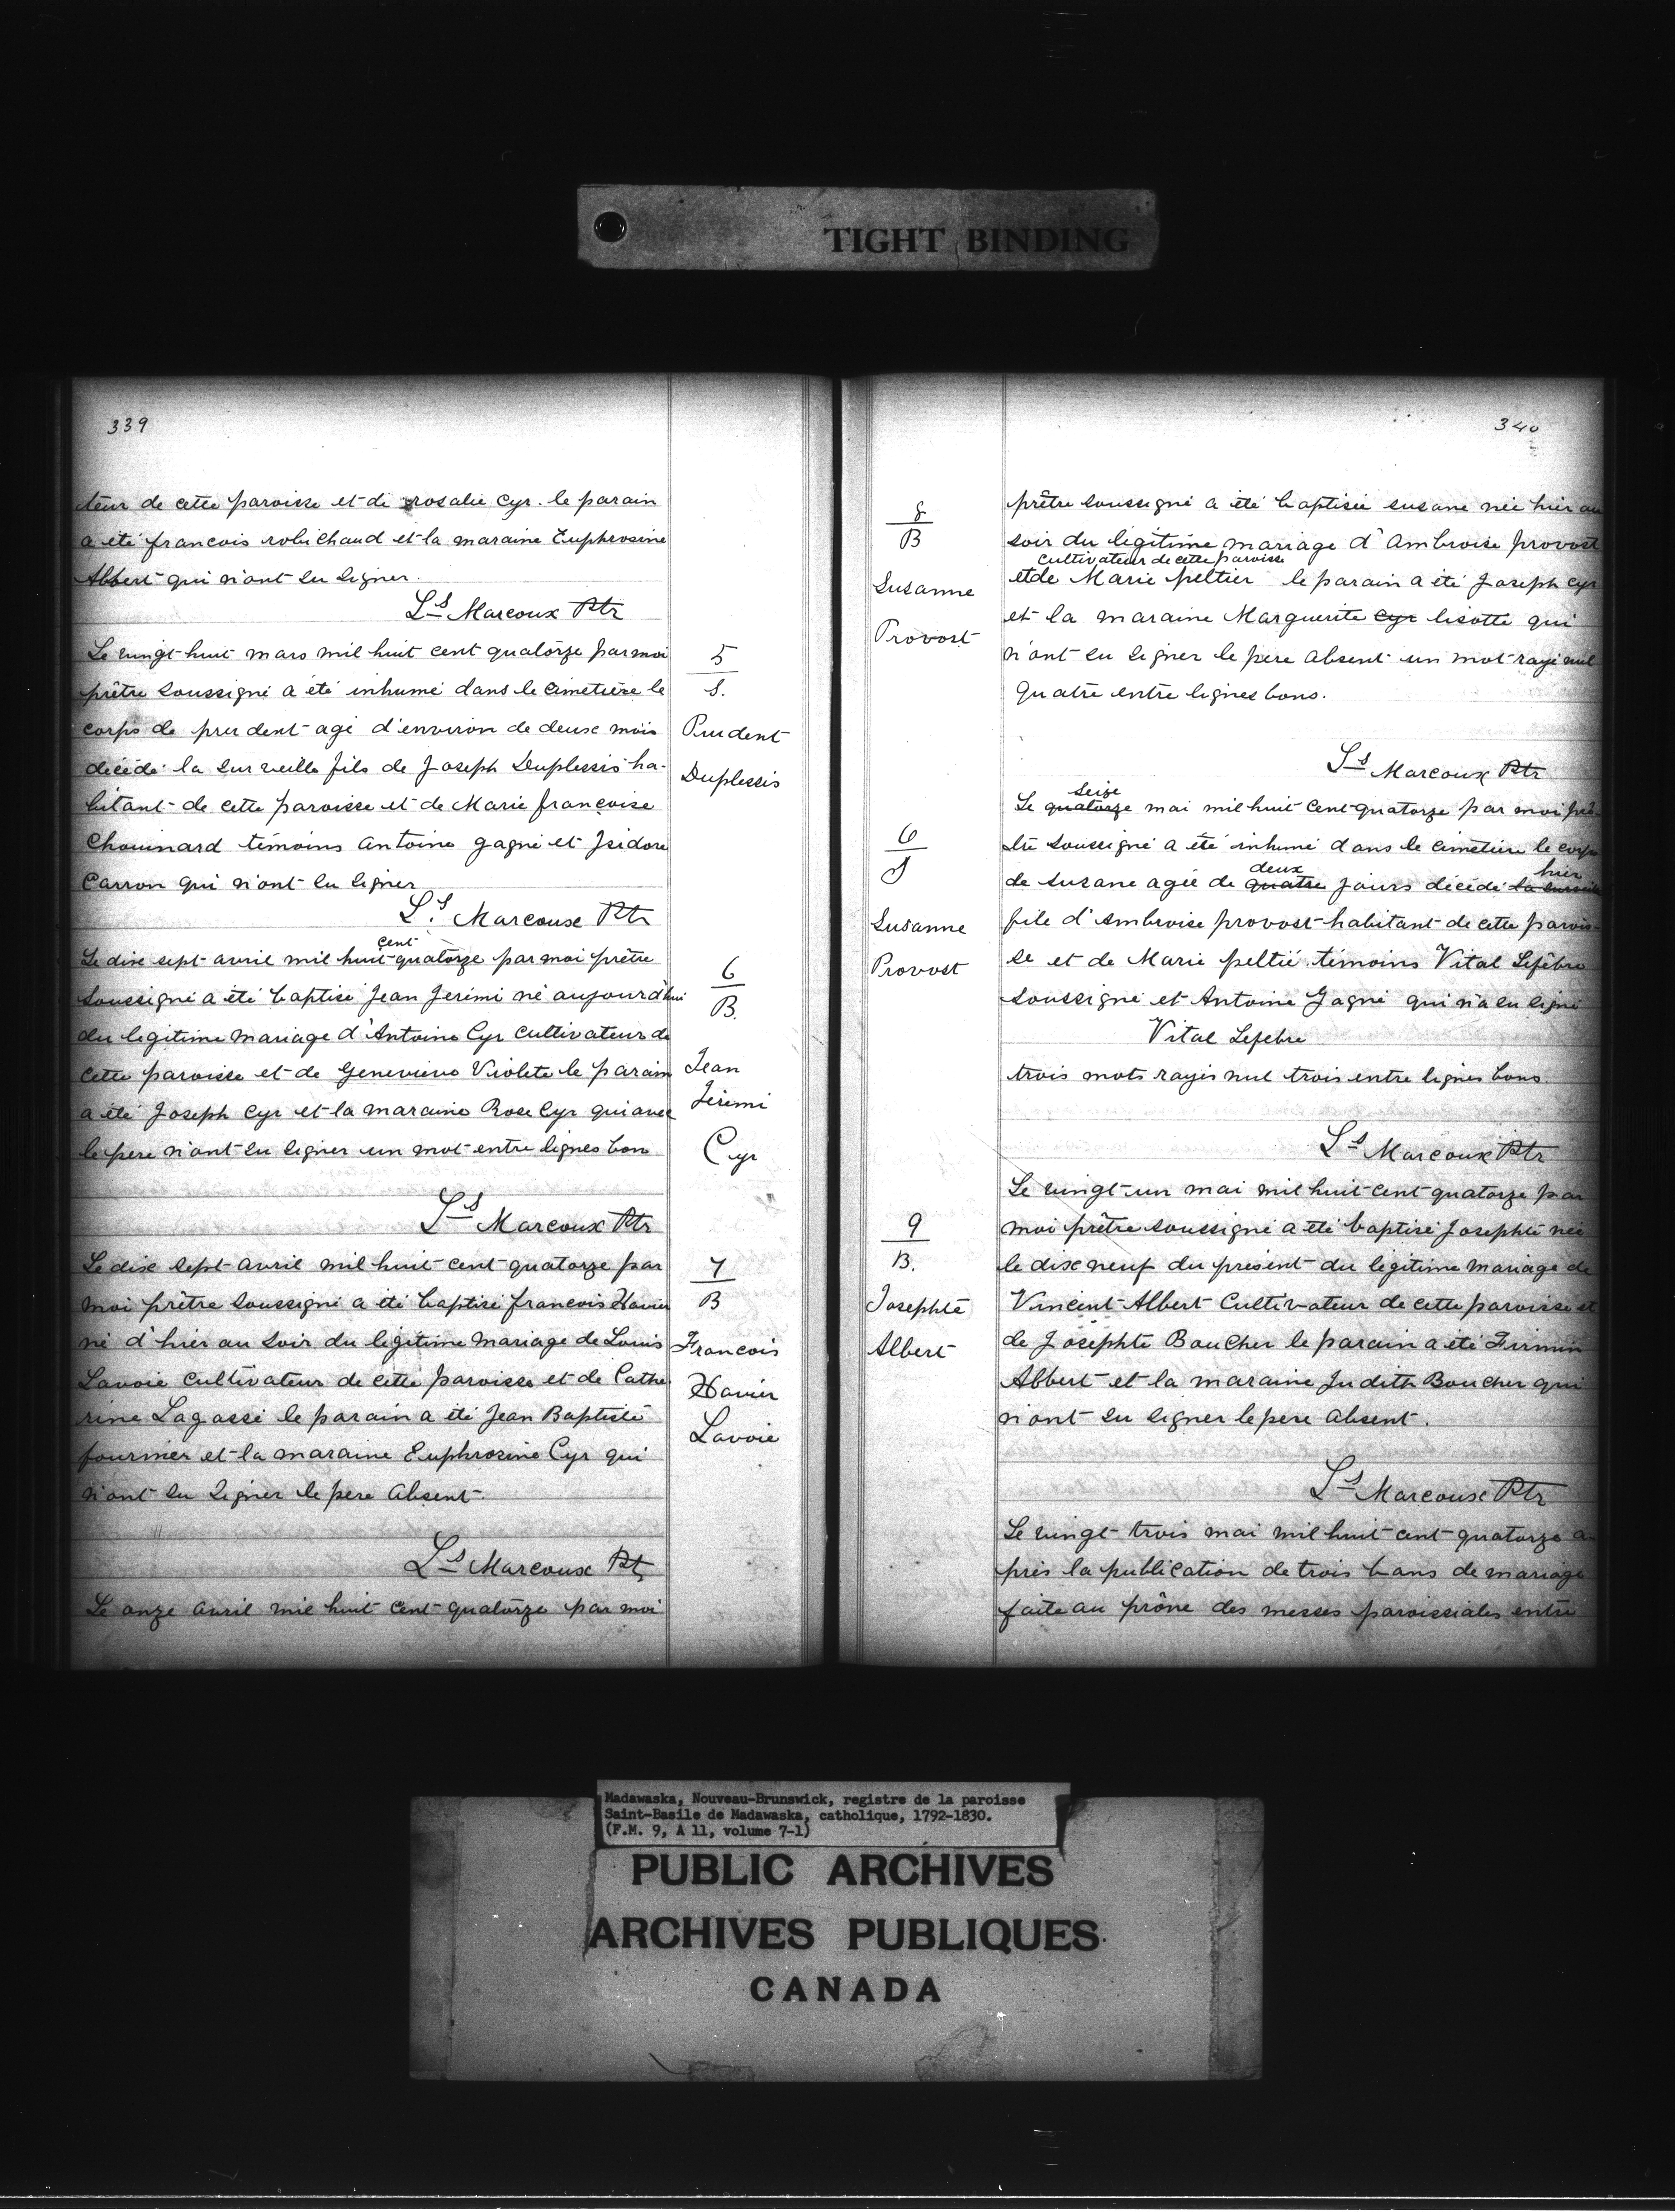 TIGHT BINDING
339
teur de cette paroisse et de rosalie Cyr. le parain
a été francois robichaud et la maraine Euphrosine
Abbert qui n'ont su signer.
Ls Marcoux Ptr
Le vingt huit mars mil huit cent quatorze par moi
prêtre soussigné a été inhumé dans le cimetière le
corps de prudent agé d'environ de deux mois
décédé la surveille fils de Joseph Duplessis ha-
bitant de cette paroisse et de Marie françoise
Chouinard témoins Antoine gagné et Isidore
Carron qui n'ont su signer
Ls Marcoux Ptr
5
S.
Prudent
Duplessis
Le dix sept avril mil huit cent quatorze par moi prêtre
soussigné a été baptisé Jean Jerémi né aujourd'hui
du legitime mariage d'Antoine Cyr cultivateur de
cette paroisse et de Genevieve Violete le parain
a été Joseph Cyr et la maraine Rose Cyr qui avec
le pere n'ont su signer un mot entre lignes bon
Ls Marcoux Ptr
6
B.
Jean
Jérémi
Cyr
Le dix sept avril mil huit cent quatorze par
moi prêtre soussigné a été baptisé francois Xavier
né d'hier au soir du légitime mariage de Louis
Lavoie cultivateur de cette paroisse et de Cathe
rine Lagassé le parain a été Jean Baptiste
fournier et la maraine Euphrosine Cyr qui
n'ont su signer le pere absent.
Ls Marcoux Pt
7
B
Francois
Xavier
Lavoie
Le onze avril mil huit cent quatorze par moi
340
8
B
Susanne
Provost
prêtre soussigné a été baptisée susane née hier au
soir du légitime mariage d'ambroise provost
cultivateur de cette paroisse
et de Marie peltier le parain a été Joseph Cyr
et la maraine Marguerite Cyr lisotte qui
n'ont su signer le pere absent un mot rayé nul
Quatre entre lignes bons.
Ls Marcoux Ptr
6
S
Susanne
Provost
seize
Le quatorze mai mil huit cent quatorze par moi prê-
tre soussigné a été inhumé dans le cimetière le corps
deux hier
de suzane agée de quatre jours décédé la surveille
file d'ambroise provost habitant de cette parois-
se et de Marie peltié témoins Vital Lefebre
soussigné et Antoine Gagné qui n'a su signé
Vital Lefebre
trois mots rayés nul trois entre lignes bons.
Ls Marcoux Ptr
9
B.
Josephte
Albert
Le vingt un mai mil huit cent quatorze par
moi prêtre soussigné a été baptisé Josephte née
le dix neuf du présent du légitime mariage de
Vincent Albert Cultivateur de cette paroisse et
de Josephte Boucher le parain a été Firmin
Abbert et la maraine Judith Boucher qui
n'ont su signer le pere absent.
Ls Marcoux Ptr
Le vingt trois mai mil huit cent quatorze a-
près la publication de trois bans de mariage
faite au prône des messes paroissiales entre
Madawaska, Nouveau-Brunswick, registre de la paroisse
Saint-Basile de Madawaska, catholique, 1792-1830.
(F.M. 9, A 11, volume 7-1)
PUBLIC ARCHIVES
ARCHIVES PUBLIQUES
CANADA